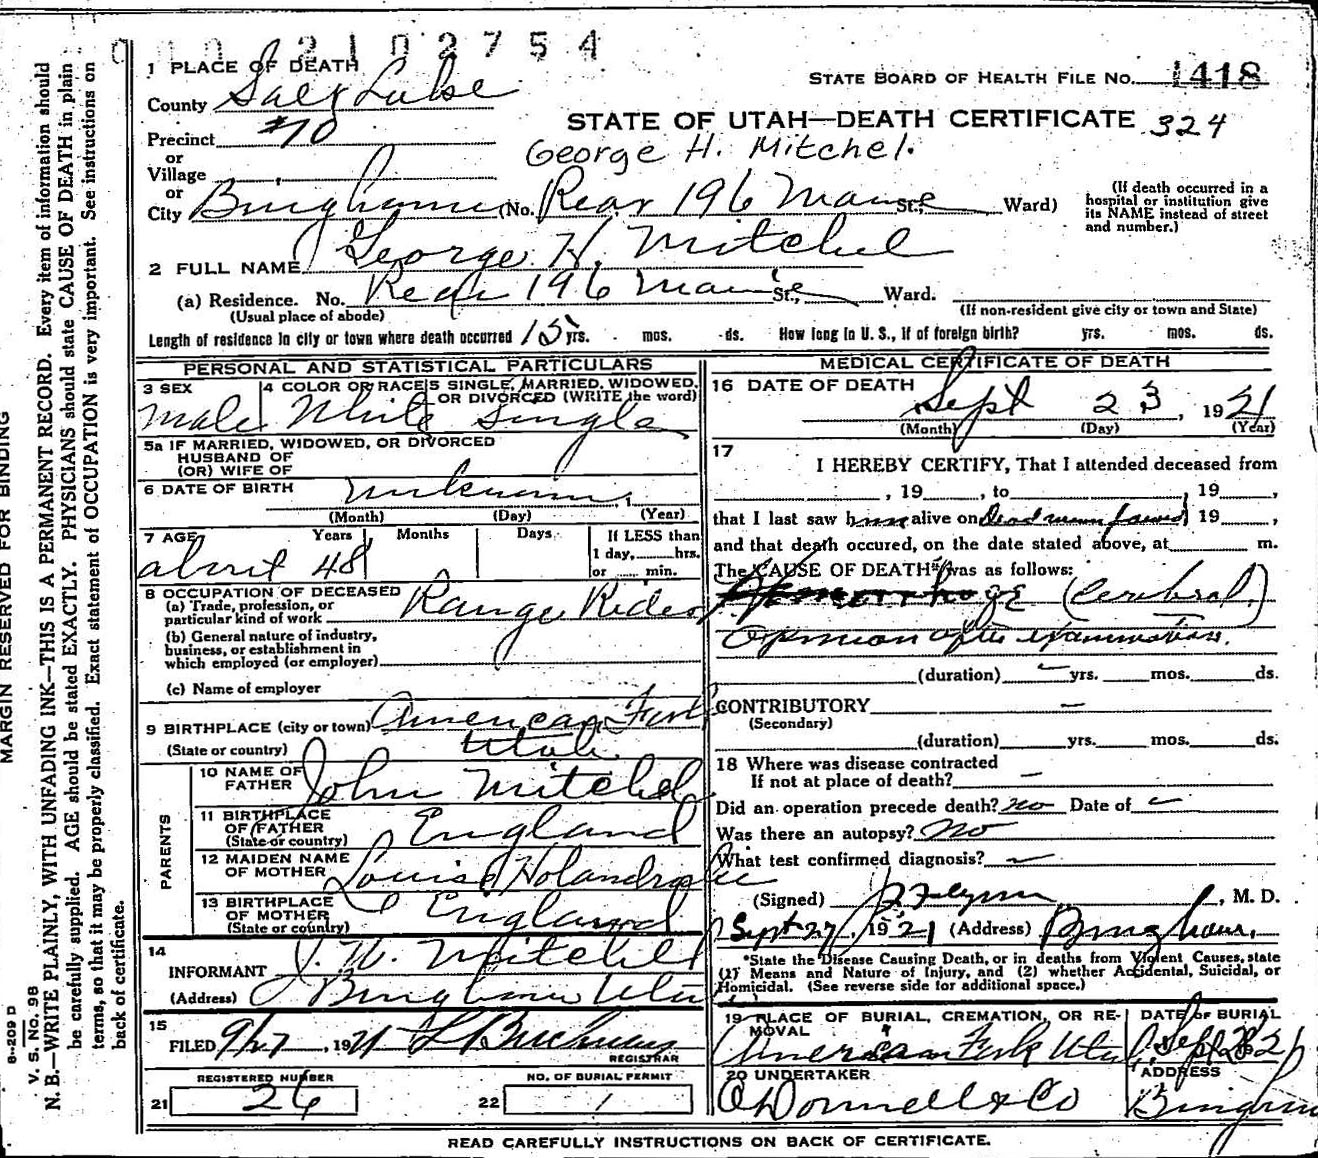 0002102754
1 PLACE OF DEATH
STATE BOARD OF HEALTH FILE No. 1418
County Salt Lake
STATE OF UTAH—DEATH CERTIFICATE 324
Precinct #10
George H. Mitchel.
or
Village
or
City Bingham (No. Rear 196 Main St., Ward)
(If death occurred in a hospital or institution give its NAME instead of street and number.)
2 FULL NAME George H. Mitchel
(a) Residence. No. Rear 196 Main St., Ward.
(Usual place of abode)
(If non-resident give city or town and State)
Length of residence in city or town where death occurred 15 yrs. mos. ds. How long in U. S., if of foreign birth? yrs. mos. ds.
PERSONAL AND STATISTICAL PARTICULARS
3 SEX
Male
4 COLOR OR RACE
White
5 SINGLE, MARRIED, WIDOWED, OR DIVORCED (WRITE the word)
Single
5a IF MARRIED, WIDOWED, OR DIVORCED
HUSBAND OF
(OR) WIFE OF
6 DATE OF BIRTH unknown, 1
(Month) (Day) (Year)
7 AGE Years Months Days If LESS than
1 day, hrs.
or min.
about 48
8 OCCUPATION OF DECEASED
(a) Trade, profession, or
particular kind of work Range Rider
(b) General nature of industry,
business, or establishment in
which employed (or employer)
(c) Name of employer
9 BIRTHPLACE (city or town) American Fork
(State or country) Utah
PARENTS
10 NAME OF
FATHER John Mitchel
11 BIRTHPLACE
OF FATHER England
(State or country)
12 MAIDEN NAME
OF MOTHER Louise
13 BIRTHPLACE
OF MOTHER England
(State or country)
14
INFORMANT J. W. Mitchell
(Address) Bingham Utah
15
FILED 9/27, 1921
REGISTRAR
REGISTERED NUMBER
21 26
NO. OF BURIAL PERMIT
22 1
MEDICAL CERTIFICATE OF DEATH
16 DATE OF DEATH
Sept 23, 1921
(Month) (Day) (Year)
17
I HEREBY CERTIFY, That I attended deceased from
, 19 , to , 19 ,
that I last saw h alive on Dead when found 19 ,
and that death occured, on the date stated above, at m.
The CAUSE OF DEATH* was as follows:
Hemorrhage (Cerebral)
Opinion after examination.
(duration) yrs. mos. ds.
CONTRIBUTORY —
(Secondary)
(duration) yrs. mos. ds.
18 Where was disease contracted
If not at place of death? —
Did an operation precede death? no Date of
Was there an autopsy? No
What test confirmed diagnosis?
(Signed) , M. D.
Sept 27, 1921 (Address) Bingham,
*State the Disease Causing Death, or in deaths from Violent Causes, state
(1) Means and Nature of Injury, and (2) whether Accidental, Suicidal, or
Homicidal. (See reverse side for additional space.)
19 PLACE OF BURIAL, CREMATION, OR REMOVAL
American Fork Utah
DATE OF BURIAL
20 UNDERTAKER
O'Donnell & Co
ADDRESS
Bingham
READ CAREFULLY INSTRUCTIONS ON BACK OF CERTIFICATE.
MARGIN RESERVED FOR BINDING
8—209 D
V. S. No. 98
N. B.—WRITE PLAINLY, WITH UNFADING INK—THIS IS A PERMANENT RECORD. Every item of information should
be carefully supplied. AGE should be stated EXACTLY. PHYSICIANS should state CAUSE OF DEATH in plain
terms, so that it may be properly classified. Exact statement of OCCUPATION is very important. See instructions on
back of certificate.